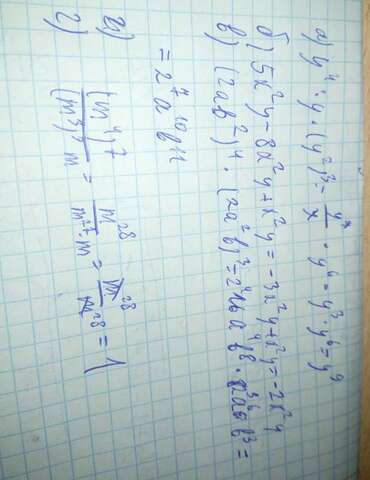 а) y⁴ · y · (y²)³ = y⁴/y · y⁶ = y³ · y⁶ = y⁹
б) 5x²y - 8x²y + x²y = -3x²y + x²y = -2x²y
в) (2ab²)⁴ · (2a²b)³ = 2⁴a⁴b⁸ · 2³a⁶b³ =
= 2⁷a¹⁰b¹¹
г) (m⁴)⁷/(m³)⁹m = m²⁸/m²⁷·m = m²⁸/m²⁸ = 1